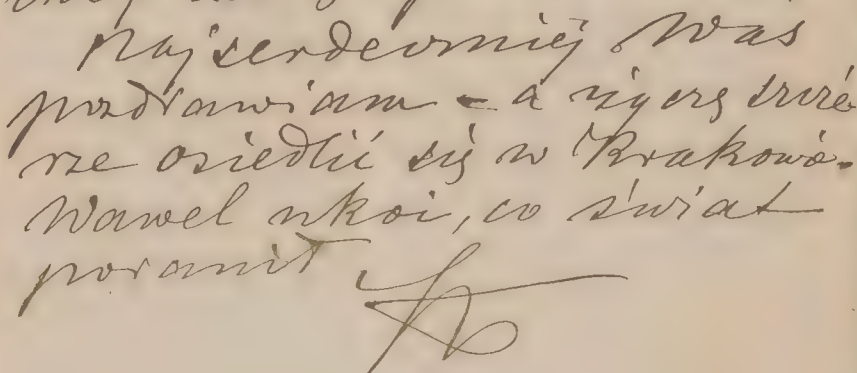 Najserdeczniej Was
pozdrawiam – a życzę szcze
rze osiedlić się w Krakowie.
Wawel ukoi, co świat
poranił